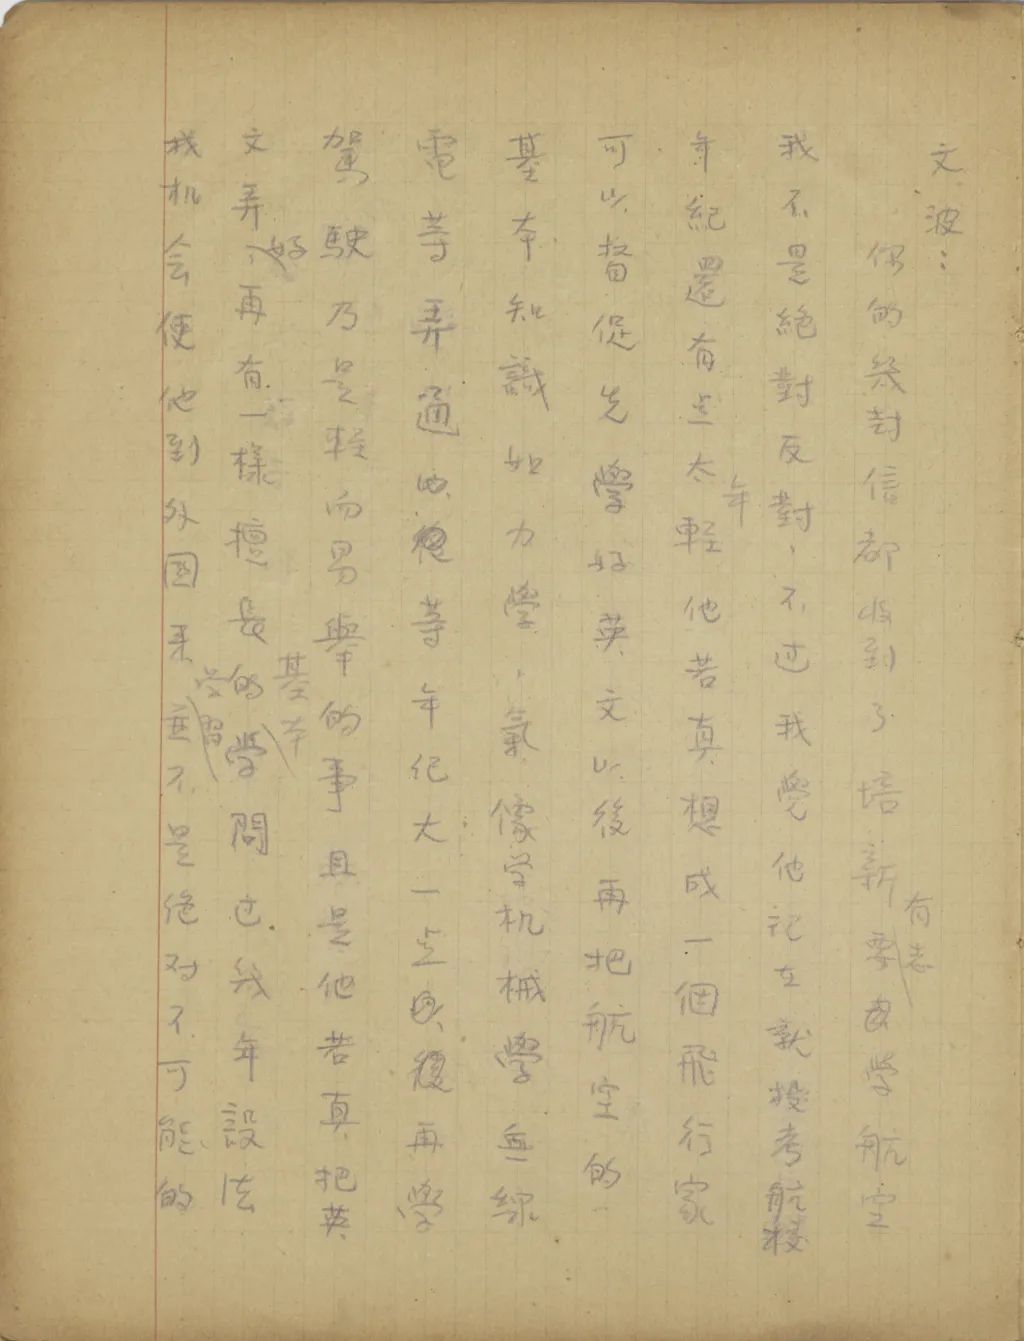 文波：
你的幾封信都收到了培新有志要学航空
我不是絕對反對，不过我覺他現在就投考航校
年紀還有点太年輕他若真想成一個飛行家
可以督促先學好英文以後再把航空的
基本知識如力學，氣像学机械學無線
電等弄通以後等年纪大一点以後再學
駕駛乃是輕而易舉的事且是他若真把英
文弄好，再有一樣擅長的基本學問过幾年設法
找机会使他到外國来学習並不是绝对不可能的